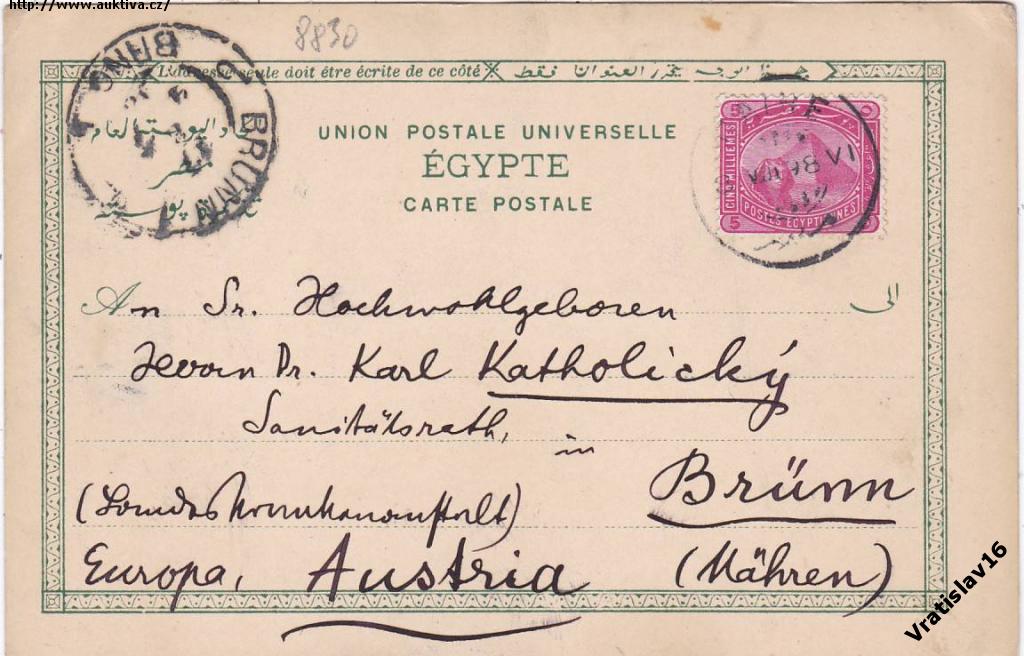 http://www.auktiva.cz/
8830
L'adresse seule doit être écrite de ce côté
هذا الوجه يحرر العنوان فقط
BRÜNN
UNION POSTALE UNIVERSELLE
ÉGYPTE
CARTE POSTALE
5
CINQ MILLIEMES
POSTES EGYPTIENNES
5
An Sr. Hochwohlgeboren
الى
Herrn Dr. Karl Katholický
Sanitätsrath,
in
Brünn
(Landeskrankenanstalt)
Europa, Austria (Mähren)
Vratislav16